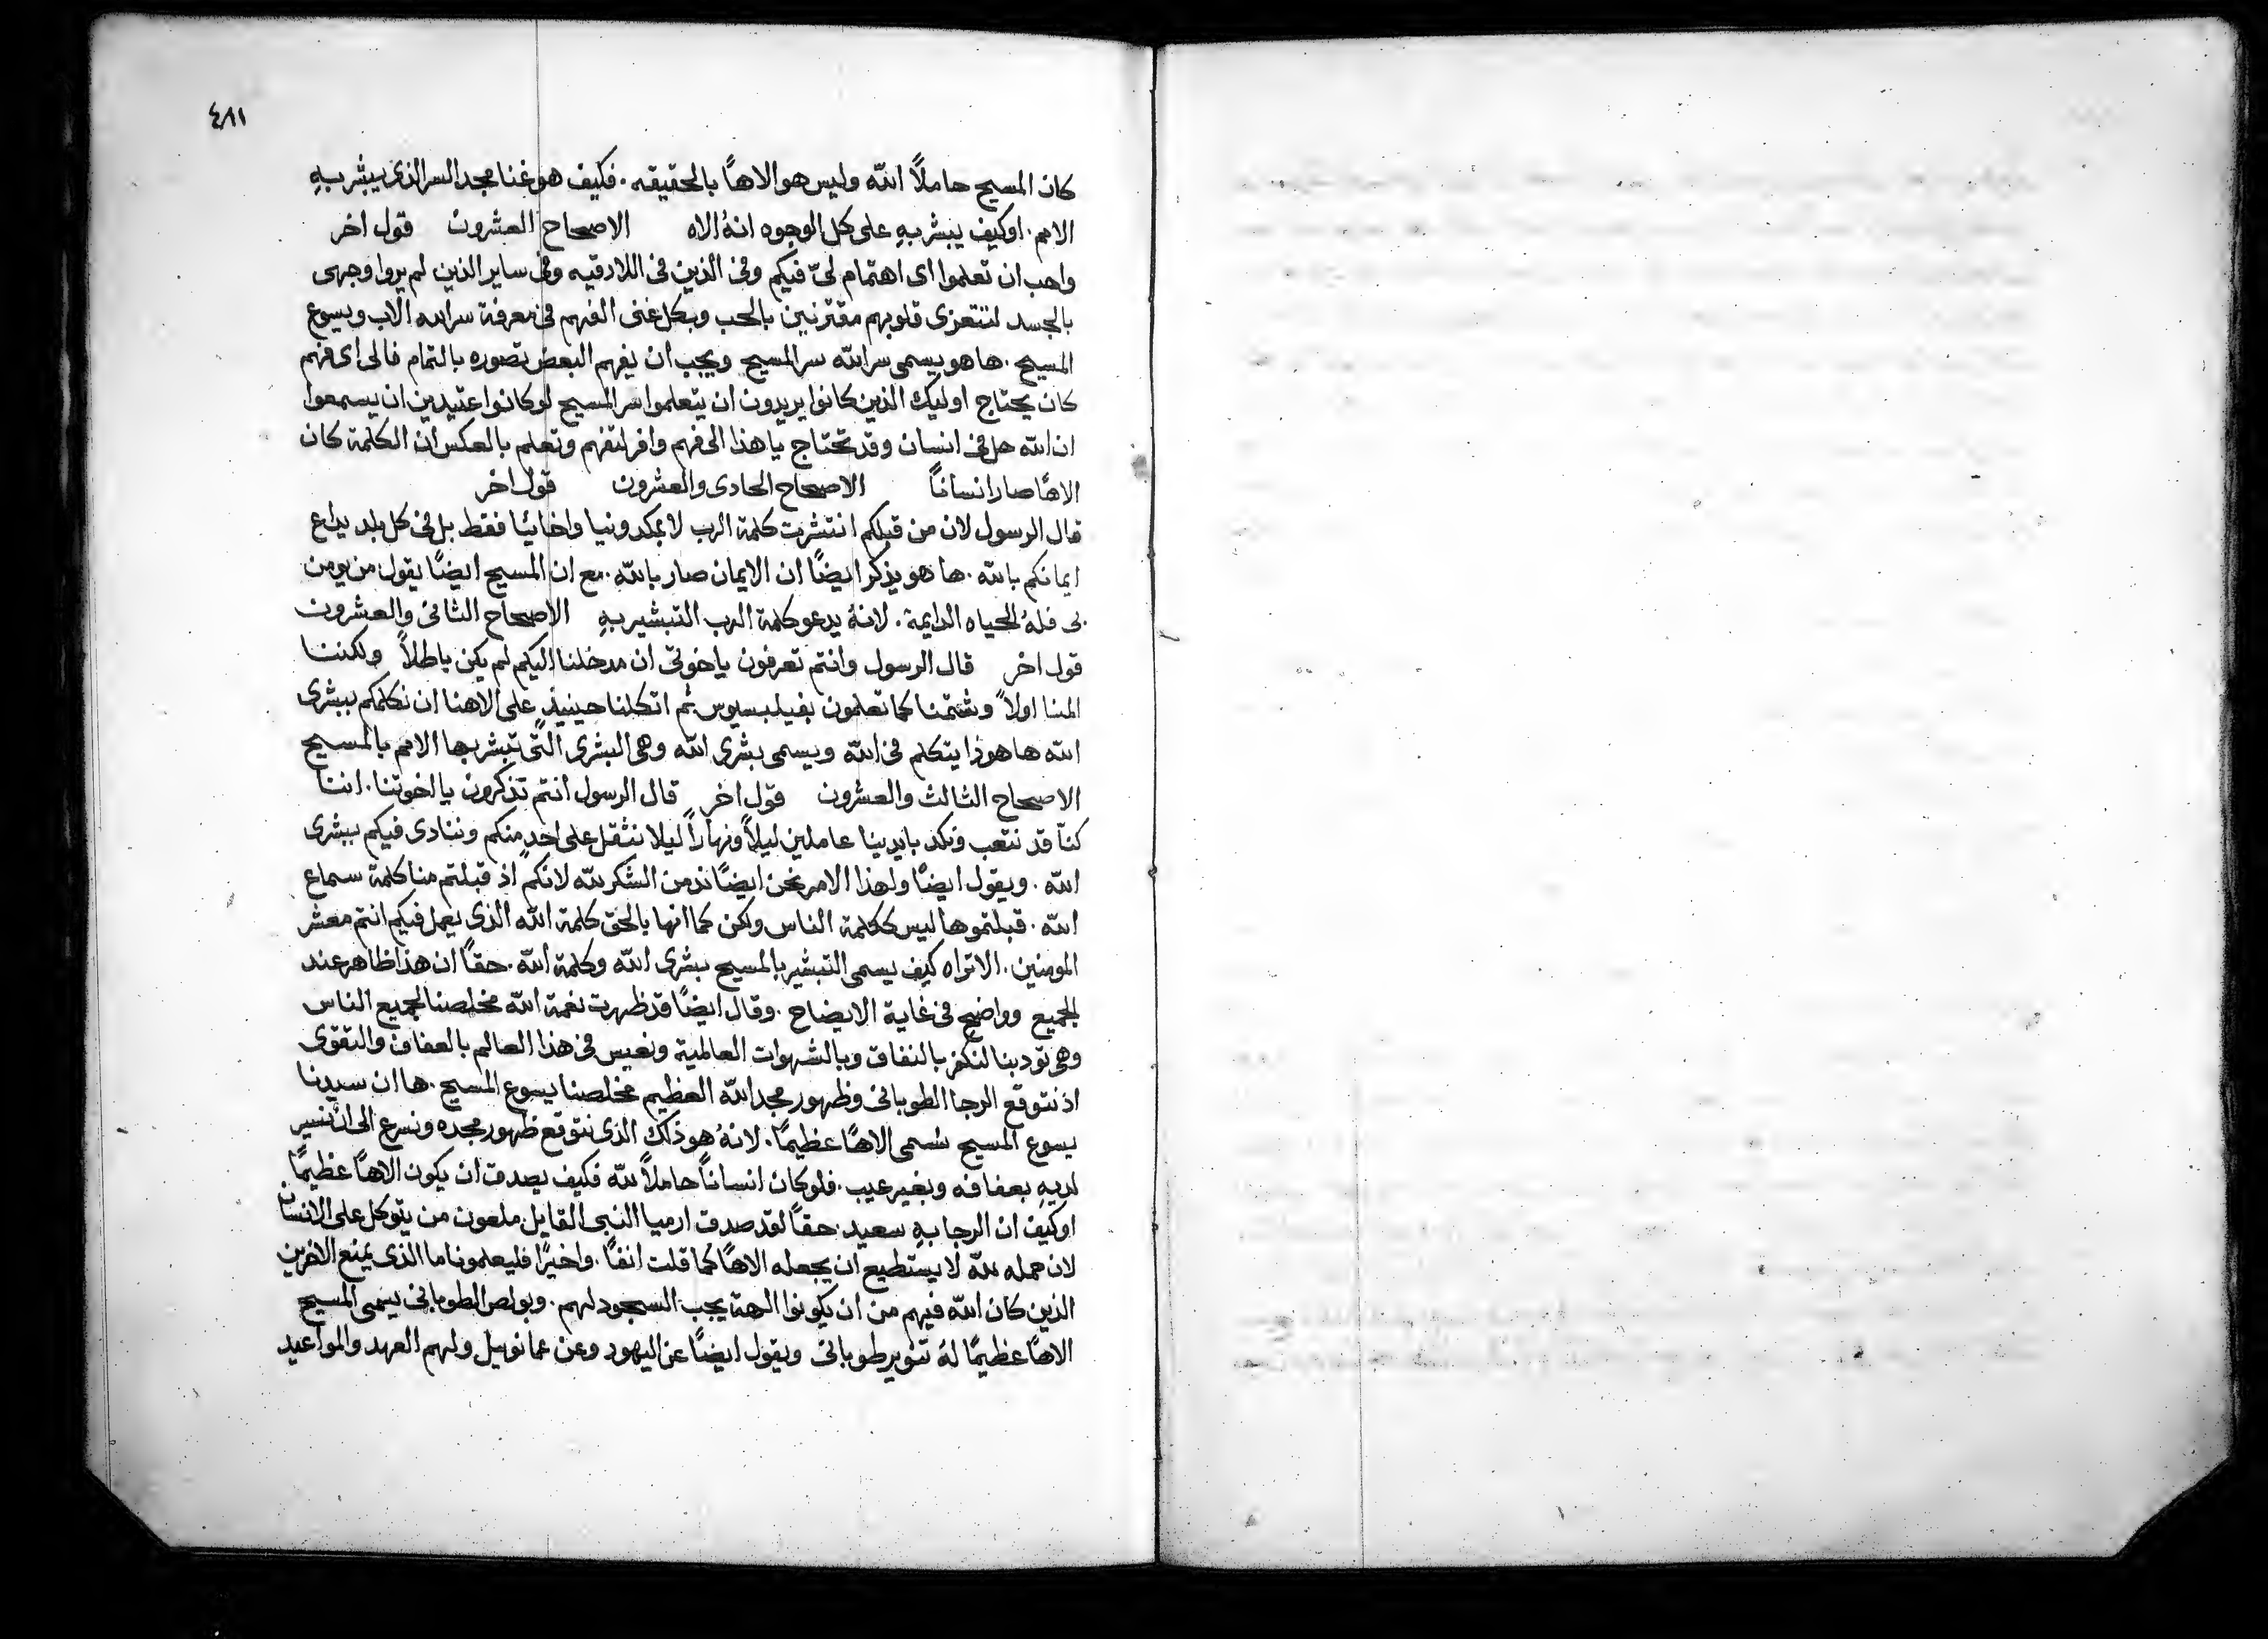 ٤٨١
كان المسيح حاملاً الله وليس هو الاهاً بالحقيقه . فكيف هو غنا مجد السر الذى يبشر بهِ
الامم . اوكيف يبشر بهِ على كل الوجوه انهُ الاه الاصحاح العشرون قول اخر
واحب ان تعلموا اى اهتمام لىّ فيكم وفى الذين فى اللادقيه وفى ساير الذين لم يروا وجهى
بالجسد لتتعزى قلوبهم مقترنين بالحب وبكل غنى الفهم فى معرفة سر الله الاب ويسوع
المسيح . ها هو يسمى سر الله سر المسيح ويجب ان يفهم البعض تصوره بالتمام فالى اى فهم
كان يحتاج اوليك الذين كانوا يريدون ان يتعلموا سر المسيح لوكانوا عتيدين ان يسمعوا
ان الله حل فى انسان وقد تحتاج يا هذا الى فهم وافر لتفهم وتعلم بالعكس ان الكلمة كان
الاهًا صار انساناً الاصحاح الحادى والعشرون قول اخر
قال الرسول لان من قبلكم انتشرت كلمة الرب لا بمكدونيا واخائيا فقط بل فى كل بلد يذاع
ايمانكم بالله . ها هو يذكر ايضًا ان الايمان صار بالله . مع ان المسيح ايضًا يقول من يومن
بى فلهُ الحياه الدايمة . لانهُ يدعو كلمة الرب التبشير بهِ الاصحاح الثانى والعشرون
قول اخر قال الرسول وانتم تعرفون ياخوتى ان مدخلنا اليكم لم يكن باطلاً ولكننا
المنا اولاً وشتمنا كما تعلمون بفيلبسيوس ثم اتكلنا حينيذٍ على الاهنا ان نكلمكم ببشرى
الله ها هوذا يتكلم فى الله ويسمى بشرى الله وهى البشرى التى تبشر بها الامم بالمسيح
الاصحاح الثالث والعشرون قول اخر قال الرسول انتم تذكرون يا اخوتنا . اننا
كنّا قد نتعب ونكد بايدينا عاملين ليلاً ونهاراً ليلا نثقل على احدٍ منكم وننادى فيكم ببشرى
الله . ويقول ايضًا ولهذا الامر نحن ايضًا نذمن الشكر لله لانكم اذ قبلتم منا كلمة سماع
الله . قبلتموها ليس ككلمة الناس ولكن كما انها بالحق كلمة الله الذى يعمل فيكم انتم معشر
المومنين . الا تراه كيف يسمى التبشير بالمسيح بشرى الله وكلمة الله . حقاً ان هذا ظاهر عند
الجميع وواضح فى غاية الايضاح . وقال ايضًا قد ظهرت نعمة الله مخلصنا لجميع الناس
وهى تودبنا لنكفر بالنفاق وبالشهوات العالمية ونعيس فى هذا العالم بالعفاف والتقوى
اذ نتوقع الرجا الطوبانى وظهور مجد الله العظيم مخلصنا يسوع المسيح . ها ان سيدنا
يسوع المسيح سُمى الاهًا عظيمًا . لانهُ هو ذلك الذى نتوقع ظهور مجده ونسرع الى ان نسير
لديهِ بعفافه وبغير عيب . فلو كان انساناً حاملاً لله فكيف يصدق ان يكون الاهًا عظيمًا
اوكيف ان الرجا بهِ سعيد . حقاً لقد صدق ارميا النبى القايل ملعون من يتوكل على الانسان
لان حمله لله لا يستطيع ان يجعله الاهًا كما قلت انفًا . واخيرًا فليعلمونا ما الذى يمنع الاخرين
الذين كان الله فيهم من ان يكونوا الهة يجب السجود لهم . وبولص الطوبانى يسمى المسيح
الاهًا عظيمًا لهُ تنوير طوبانى ويقول ايضًا عن اليهود وعن عمانوييل ولهم العهد والمواعيد